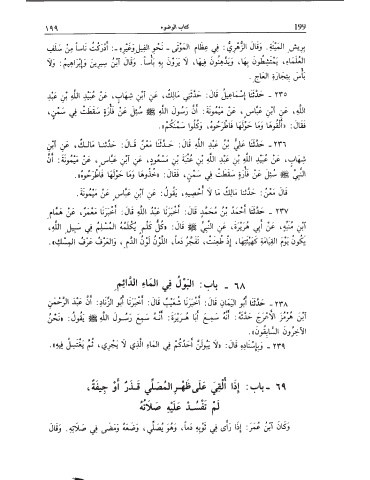 ١٩٩ كتاب الوضوء 199
بريش الميتة. وقال الزُّهْرِيُّ: في عِظَامِ المَوْتَى - نَحْوَ الفيلِ وَغَيْرِهِ -: أَدْرَكْتُ نَاساً مِنْ سَلَفِ
العُلَمَاءِ، يَمْتَشِطُونَ بِهَا، وَيَدَّهِنُونَ فِيهَا، لَا يَرَوْنَ بِهِ بَأْساً. وقَالَ ابْنُ سِيرِينَ وَإِبْرَاهِيمُ: وَلَا
بَأْسَ بِتِجَارَةِ العَاجِ.
٢٣٥ - حَدَّثَنَا إِسْمَاعِيلُ قَالَ: حَدَّثَنِي مَالِكٌ، عَنِ ابْنِ شِهَابٍ، عَنْ عُبَيْدِ اللَّهِ بْنِ عَبْدِ
اللَّهِ، عَنِ ابْنِ عَبَّاسٍ، عَنْ مَيْمُونَةَ: أَنَّ رَسُولَ اللَّهِ ﷺ سُئِلَ عَنْ فَأْرَةٍ سَقَطَتْ فِي سَمْنٍ،
فَقَالَ: «أَلْقُوهَا وَمَا حَوْلَهَا فَاطْرَحُوهُ، وَكُلُوا سَمْنَكُمْ».
٢٣٦ - حَدَّثَنَا عَلِيُّ بْنُ عَبْدِ اللَّهِ قَالَ: حَدَّثَنَا مَعْنٌ قَالَ: حَدَّثَنَا مَالِكٌ، عَنِ ابْنِ
شِهَابٍ، عَنْ عُبَيْدِ اللَّهِ بْنِ عَبْدِ اللَّهِ بْنِ عُتْبَةَ بْنِ مَسْعُودٍ، عَنِ ابْنِ عَبَّاسٍ، عَنْ مَيْمُونَةَ: أَنَّ
النَّبِيَّ ﷺ سُئِلَ عَنْ فَأْرَةٍ سَقَطَتْ فِي سَمْنٍ، فَقَالَ: «خُذُوهَا وَمَا حَوْلَهَا فَاطْرَحُوهُ».
قَالَ مَعْنٌ: حَدَّثَنَا مَالِكٌ مَا لَا أُحْصِيهِ، يَقُولُ: عَنِ ابْنِ عَبَّاسٍ عَنْ مَيْمُونَةَ.
٢٣٧ - حَدَّثَنَا أَحْمَدُ بْنُ مُحَمَّدٍ قَالَ: أَخْبَرَنَا عَبْدُ اللَّهِ قَالَ: أَخْبَرَنَا مَعْمَرٌ، عَنْ هَمَّامِ
ابْنِ مُنَبِّهٍ، عَنْ أَبِي هُرَيْرَةَ، عَنِ النَّبِيِّ ﷺ قَالَ: «كُلُّ كَلْمٍ يُكْلَمُهُ المُسْلِمُ فِي سَبِيلِ اللَّهِ،
يَكُونُ يَوْمَ القِيَامَةِ كَهَيْئَتِهَا، إِذْ طُعِنَتْ، تَفَجَّرُ دَماً، اللَّوْنُ لَوْنُ الدَّمِ، وَالعَرْفُ عَرْفُ المِسْكِ».
٦٨ - باب: البَوْلُ فِي المَاءِ الدَّائِمِ
٢٣٨ - حَدَّثَنَا أَبُو اليَمَانِ قَالَ: أَخْبَرَنَا شُعَيْبٌ قَالَ: أَخْبَرَنَا أَبُو الزِّنَادِ: أَنَّ عَبْدَ الرَّحْمَنِ
ابْنَ هُرْمُزَ الأَعْرَجَ حَدَّثَهُ: أَنَّهُ سَمِعَ أَبَا هُرَيْرَةَ: أَنَّهُ سَمِعَ رَسُولَ اللَّهِ ﷺ يَقُولُ: «نَحْنُ
الآخِرُونَ السَّابِقُونَ».
٢٣٩ - وَبِإِسْنَادِهِ قَالَ: «لَا يَبُولَنَّ أَحَدُكُمْ فِي المَاءِ الَّذِي لَا يَجْرِي، ثُمَّ يَغْتَسِلُ فِيهِ».
٦٩ - باب: إِذَا أُلْقِيَ عَلَى ظَهْرِ المُصَلِّي قَذَرٌ أَوْ جِيفَةٌ،
لَمْ تَفْسُدْ عَلَيْهِ صَلَاتُهُ
وَكَانَ ابْنُ عُمَرَ: إِذَا رَأَى فِي ثَوْبِهِ دَماً، وَهُوَ يُصَلِّي، وَضَعَهُ وَمَضَى فِي صَلَاتِهِ. وَقَالَ